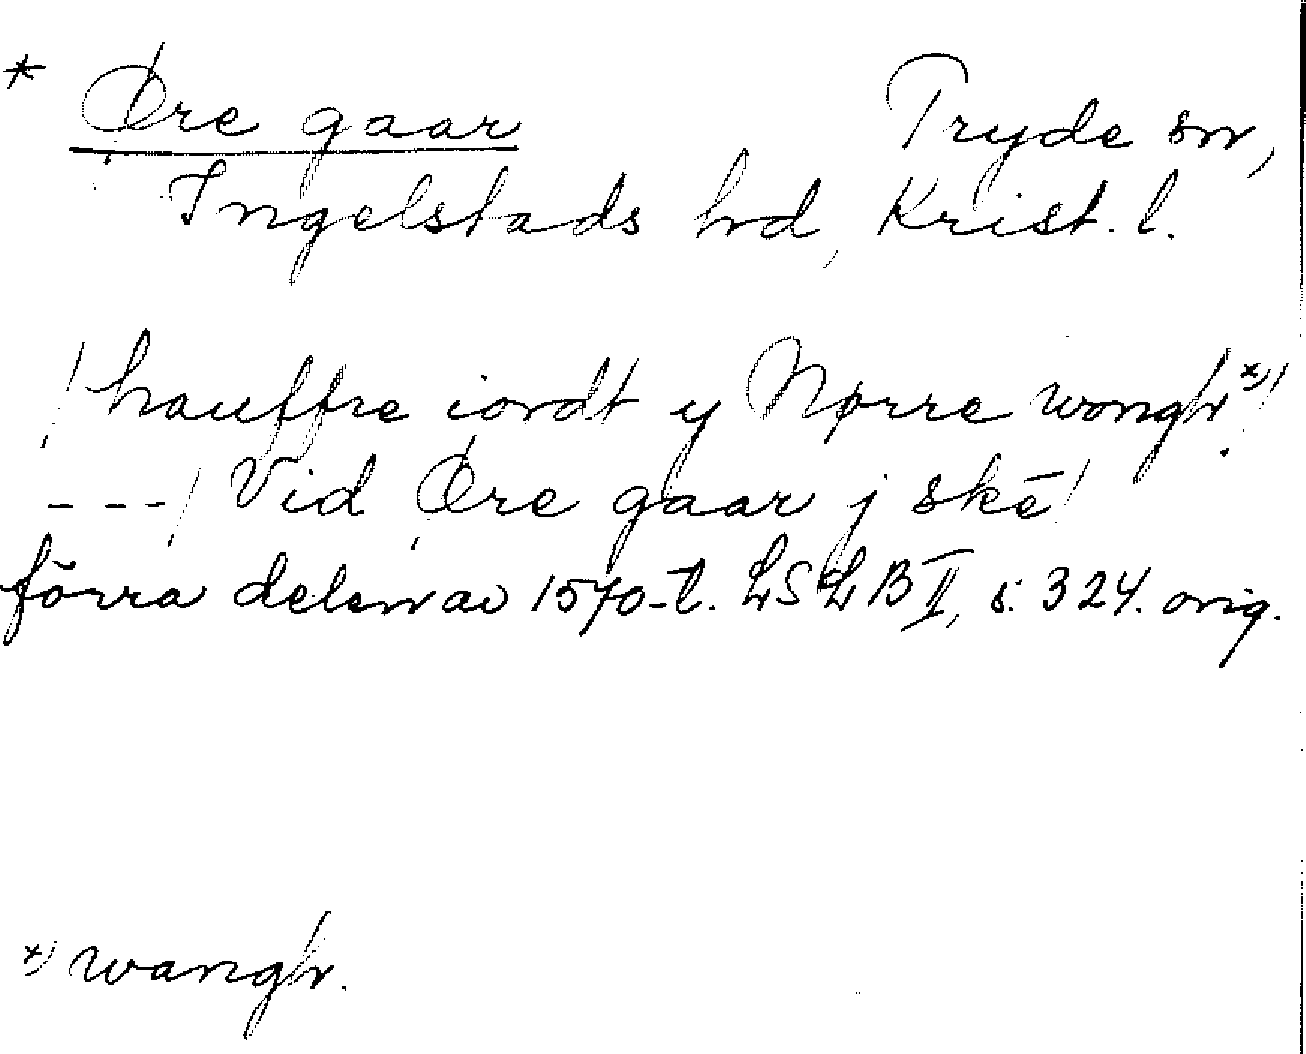 * Øre gaar Tryde sn,
Ingelstads hd, Krist. l.
/hauffre iordt y Nørre wongh x)/
---/ Vid Øre gaar j skē/
förra delen av 1570-t. LSLB II, s. 324. orig.
x) wangh.